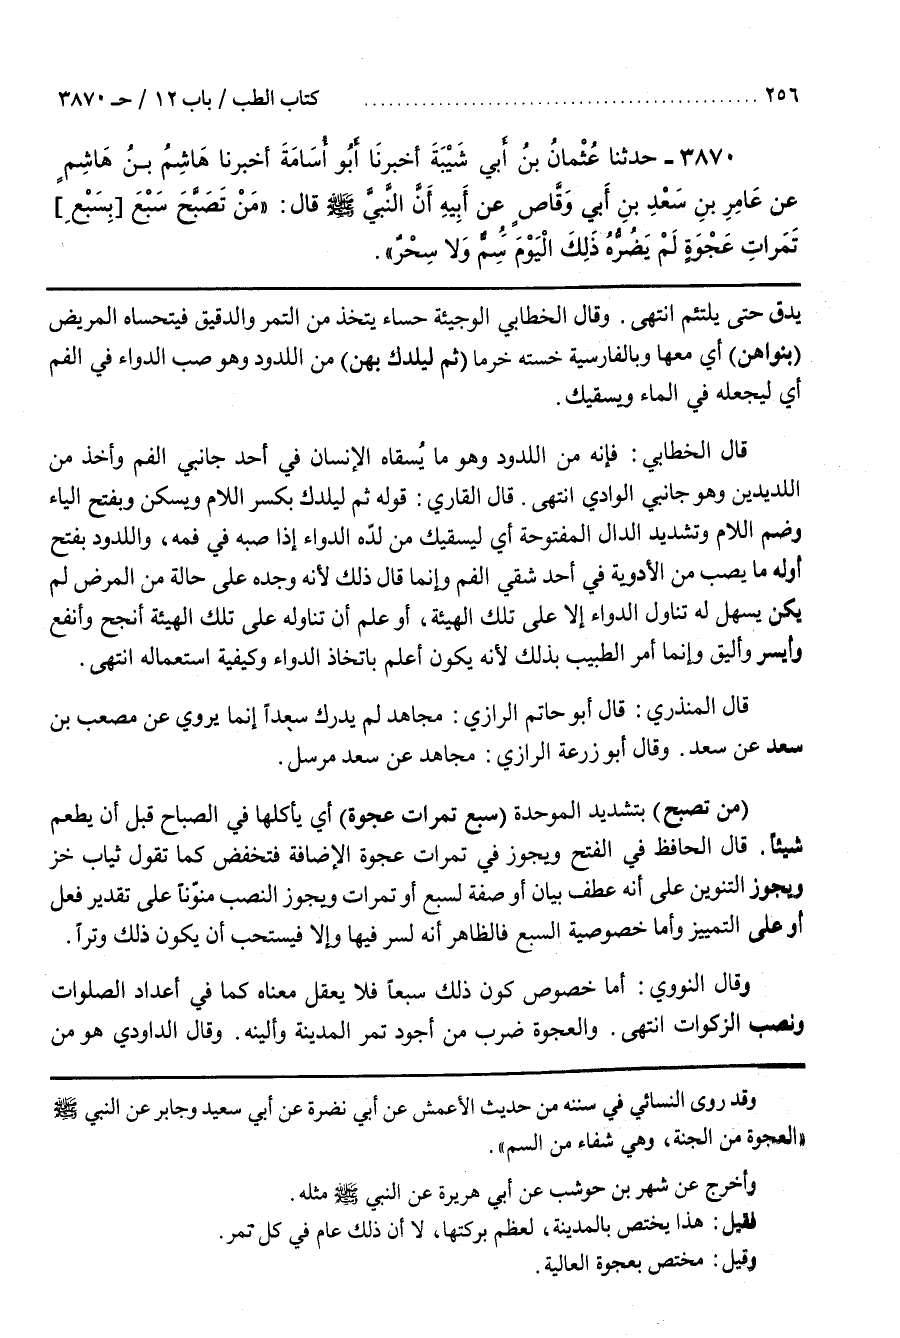 ٢٥٦ ........................................ كتاب الطب / باب ١٢ / حـ ٣٨٧٠
٣٨٧٠ ـ حدثنا عُثْمانُ بنُ أَبي شَيْبَةَ أخبرنَا أَبُو أُسَامَةَ أخبرنا هَاشِمُ بـنُ هَاشِمٍ
عن عَامِرِ بنِ سَعْدِ بنِ أَبي وَقَّاصٍ عن أَبيهِ أَنَّ النَّبيَّ ﷺ قال: «مَنْ تَصَبَّحَ سَبْعَ [بِسَبْعِ]
تَمَراتِ عَجْوَةٍ لَمْ يَضُرَّهُ ذَلِكَ الْيَوْمَ سُمٌّ وَلا سِحْرٌ».
يدق حتى يلتئم انتهى. وقال الخطابي الوجيئة حساء يتخذ من التمر والدقيق فيتحساه المريض
(بنواهن) أي معها وبالفارسية خسته خرما (ثم ليلدك بهن) من اللدود وهو صب الدواء في الفم
أي ليجعله في الماء ويسقيك.
قال الخطابي: فإنه من اللدود وهو ما يُسقاه الإنسان في أحد جانبي الفم وأخذ من
اللديدين وهو جانبي الوادي انتهى. قال القاري: قوله ثم ليلدك بكسر اللام ويسكن وبفتح الياء
وضم اللام وتشديد الدال المفتوحة أي ليسقيك من لدّه الدواء إذا صبه في فمه، واللدود بفتح
أوله ما يصب من الأدوية في أحد شقي الفم وإنما قال ذلك لأنه وجده على حالة من المرض لم
يكن يسهل له تناول الدواء إلا على تلك الهيئة، أو علم أن تناوله على تلك الهيئة أنجح وأنفع
وأيسر وأليق وإنما أمر الطبيب بذلك لأنه يكون أعلم باتخاذ الدواء وكيفية استعماله انتهى.
قال المنذري: قال أبو حاتم الرازي: مجاهد لم يدرك سعداً إنما يروي عن مصعب بن
سعد عن سعد. وقال أبو زرعة الرازي: مجاهد عن سعد مرسل.
(من تصبح) بتشديد الموحدة (سبع تمرات عجوة) أي يأكلها في الصباح قبل أن يطعم
شيئاً. قال الحافظ في الفتح ويجوز في تمرات عجوة الإضافة فتخفض كما تقول ثياب خز
ويجوز التنوين على أنه عطف بيان أو صفة لسبع أو تمرات ويجوز النصب منوّناً على تقدير فعل
أو على التمييز وأما خصوصية السبع فالظاهر أنه لسر فيها وإلا فيستحب أن يكون ذلك وتراً.
وقال النووي: أما خصوص كون ذلك سبعاً فلا يعقل معناه كما في أعداد الصلوات
ونصب الزكوات انتهى. والعجوة ضرب من أجود تمر المدينة وألينه. وقال الداودي هو من
وقد روى النسائي في سننه من حديث الأعمش عن أبي نضرة عن أبي سعيد وجابر عن النبي ﷺ
«العجوة من الجنة، وهي شفاء من السم».
وأخرج عن شهر بن حوشب عن أبي هريرة عن النبي ﷺ مثله.
فقيل: هذا يختص بالمدينة، لعظم بركتها، لا أن ذلك عام في كل تمر.
وقيل: مختص بعجوة العالية.